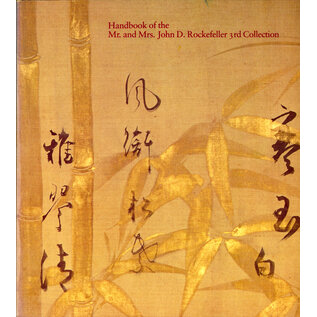 Handbook of the
Mr. and Mrs. John D. Rockefeller 3rd Collection
玉白
風
清